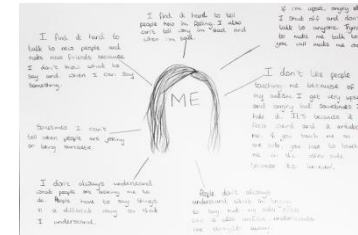 I find it hard to
talk to new people and
make new friends because
I don't know what to
say and when I can say
something.
I find it hard to tell
people how im feeling. I also
can't tell why im sad and
when im sad.
if im upset, angry
I shut off and don't
talk to anyone. Trying
to make me talk to
you will make me
I don't like people
touching me because of
my autism I get very upset
and angry but sometimes I
hide it. It's because
if you touch me on
one side, you have to touch
me on the other side
because its uneven.
ME
Sometimes I can't
tell when people are joking
or being sarcastic.
I don't always understand
what people are asking me to
do. People have to say things
in a different way so that
I understand.
People don't always
understand what im trying
to say
straight away.